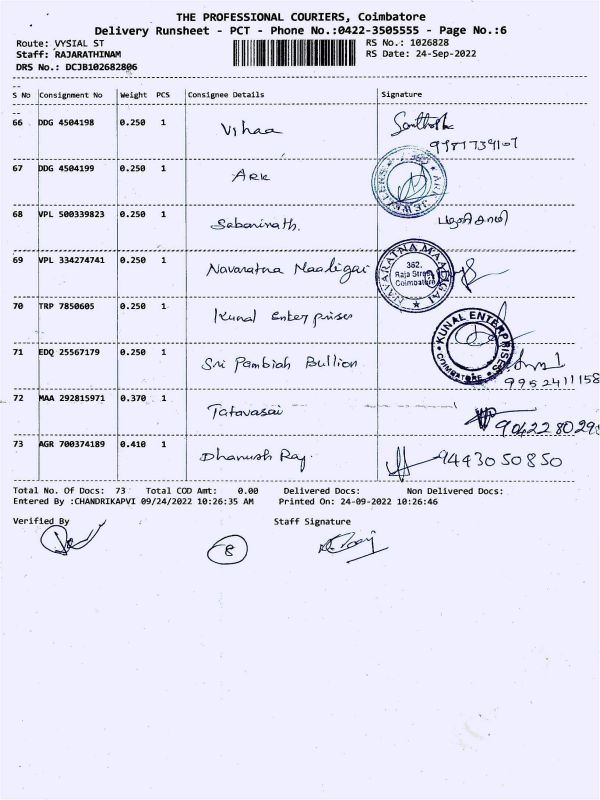 THE PROFESSIONAL COURIERS, Coimbatore
Delivery Runsheet - PCT - Phone No.:0422-3505555 - Page No.:6
Route: VYSIAL ST RS No.: 1026828
Staff: RAJARATHINAM RS Date: 24-Sep-2022
DRS No.: DCJB102682806
S No Consignment No Weight PCS Consignee Details Signature
66 DDG 4504198 0.250 1 Vihaa
67 DDG 4504199 0.250 1 ARK ARK JEWELLERS
68 VPL 500339823 0.250 1 Sabarinath.
69 VPL 334274741 0.250 1 Navaratna Maaligai NAVARATNA MAALIGAI 362, Raja Street Coimbatore
70 TRP 7850605 0.250 1 Kunal Enterprises KUNAL ENTERPRISES COIMBATORE
71 EDQ 25567179 0.250 1 Sri Pambiah Bullion 9952411158
72 MAA 292815971 0.370 1 Tatavasai
73 AGR 700374189 0.410 1 Dhanush Raj. 9443050850
Total No. Of Docs: 73 Total COD Amt: 0.00 Delivered Docs: Non Delivered Docs:
Entered By :CHANDRIKAPVI 09/24/2022 10:26:35 AM Printed On: 24-09-2022 10:26:46
Verified By Staff Signature
8